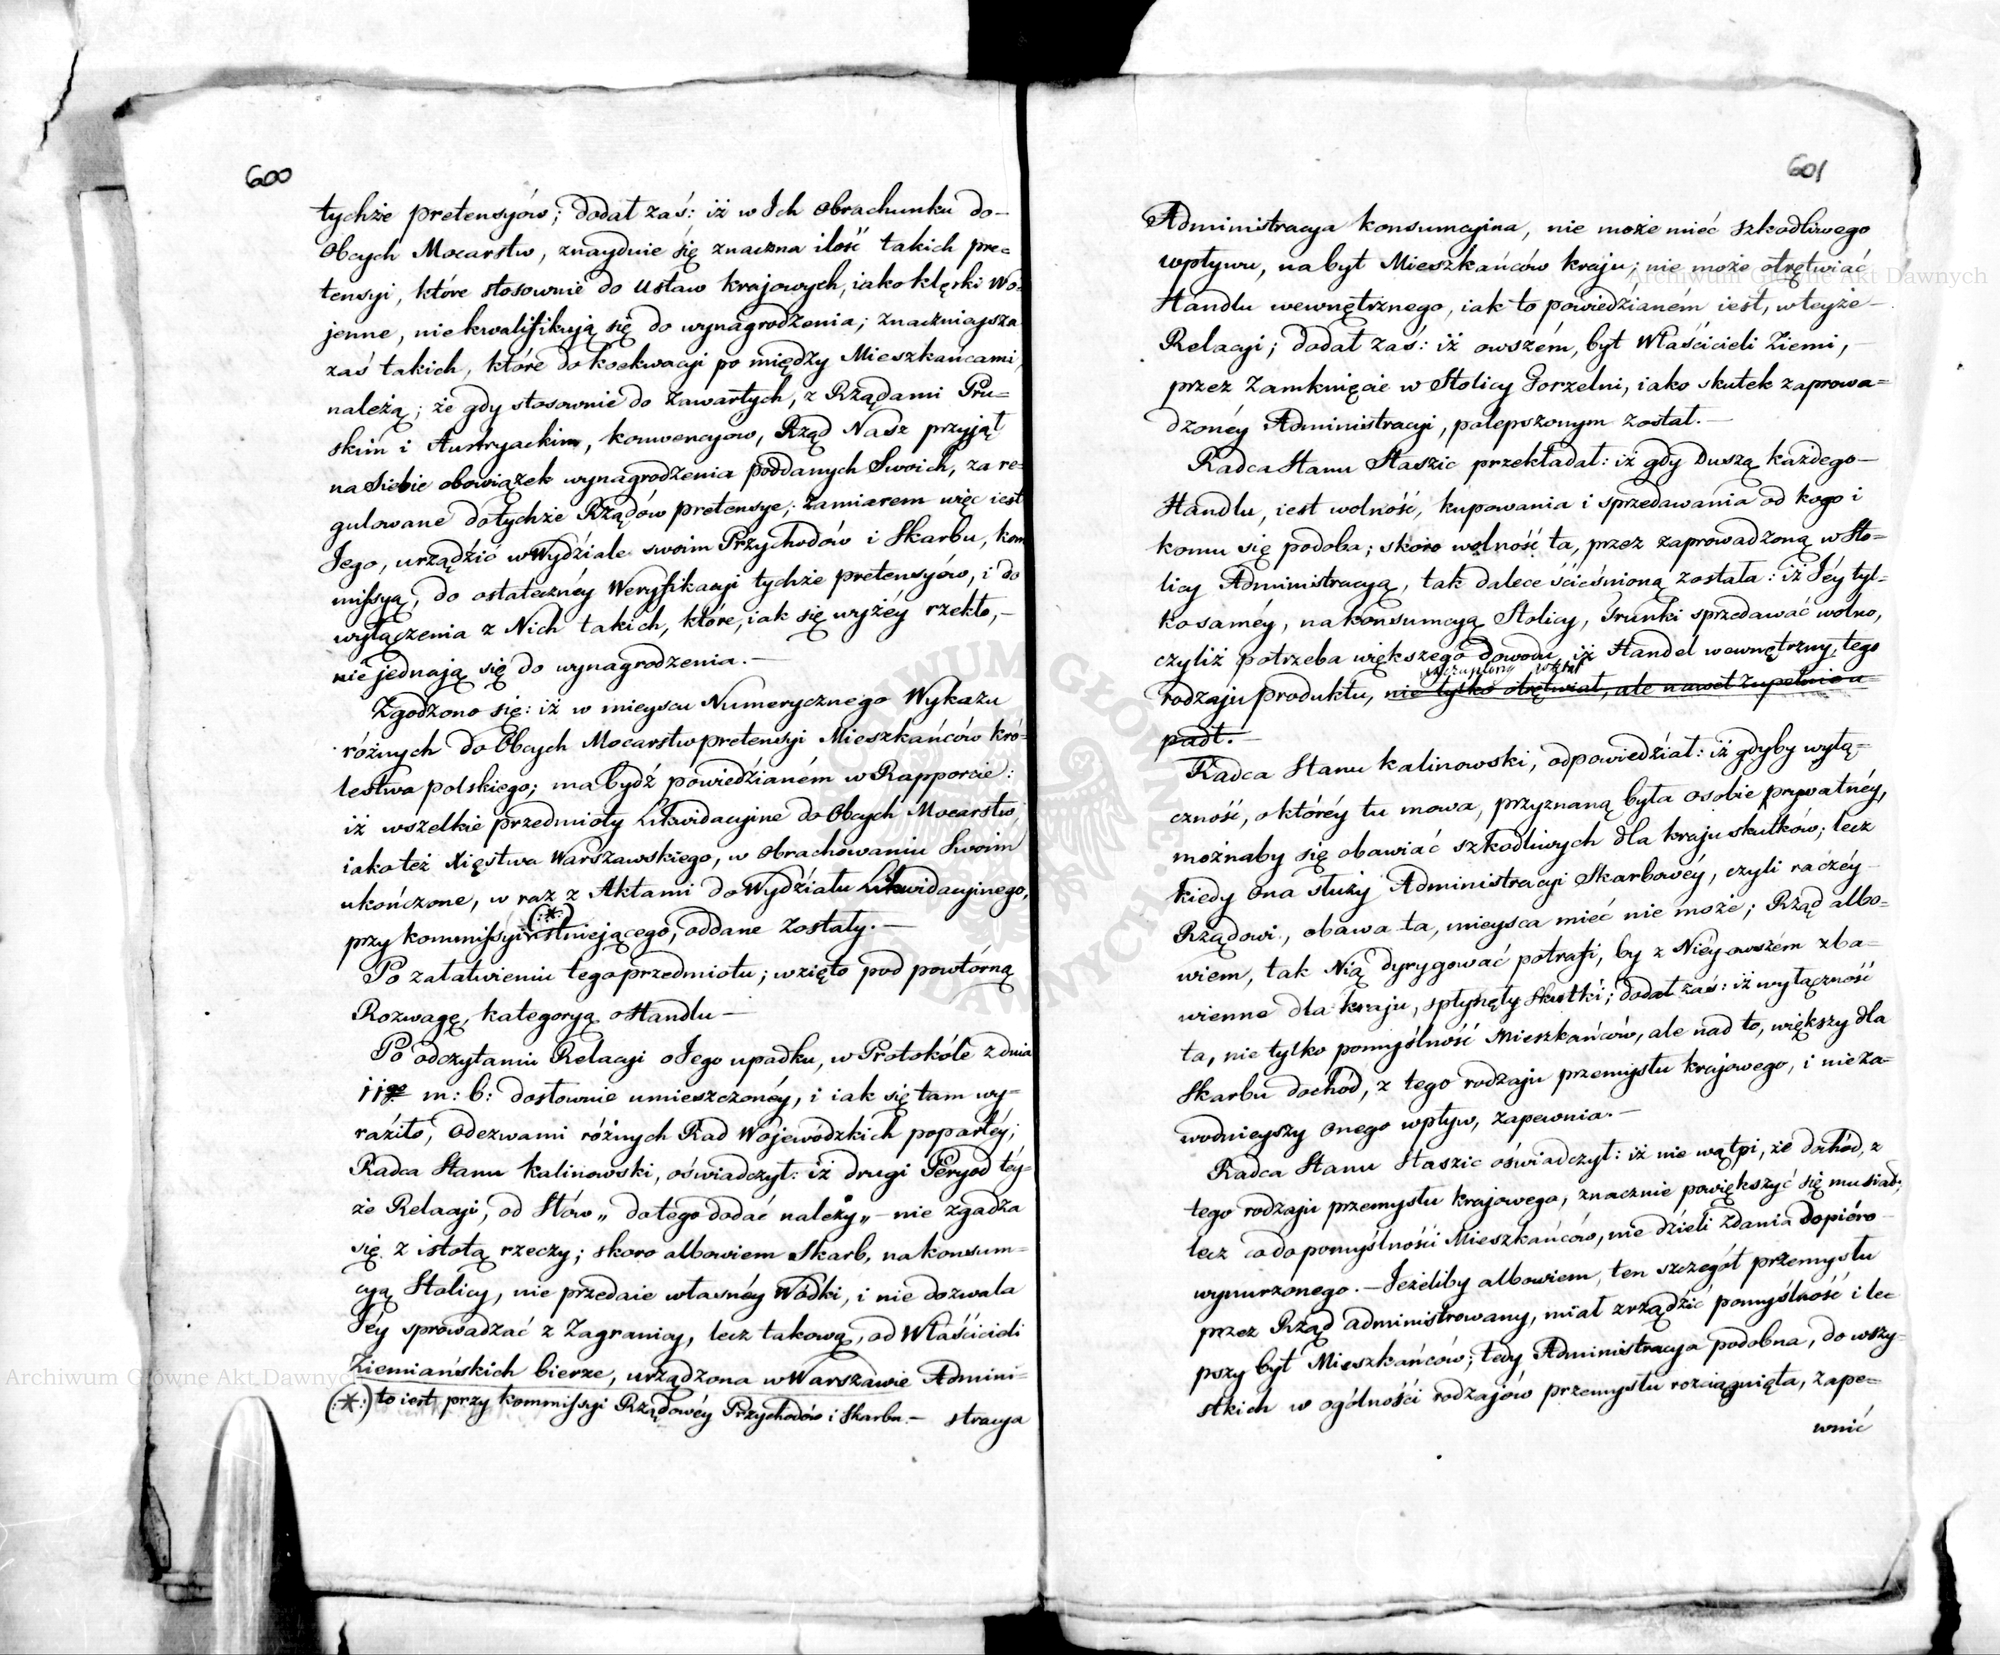 600
tychże pretensyów; dodał zaś: iż w Ich obrachunku do-
Obcych Mocarstw, znayduie się znaczna ilość takich pre=
tensyi, które stosownie do Ustaw krajowych, iako klęski Wo=
jenne, niekwalifikują się do wynagrodzenia; znaczniejsza
zaś takich, które do koekwacyi po między Mieszkańcami,
należą; że gdy stosownie do zawartych, z Rządami Pru=
skim i Austryackim, konwencyow, Rząd Nasz przyjął
na Siebie obowiązek wynagrodzenia poddanych Swoich, za re=
gulowane do tychże Rządów pretensye; zamiarem więc iest
Jego, urządzić w Wydziale swoim Przychodów i Skarbu, kom
missyą, do ostateczney Weryfikacyi tychże pretensyów, i do
wyłączenia z Nich takich, które, iak się wyżéy rzekło,-
nie jednają się do wynagrodzenia.-
Zgodzono się: iż w mieyscu Numerycznego Wykazu
różnych do Obcych Mocarstw pretensyi Mieszkańców kró=
lestwa polskiego; ma bydź powiedzianém w Rapporcie:
iż wszelkie przedmioty Likwidacyine do Obcych Mocarstw,
iako też Xięstwa Warszawskiego, w obrachowaniu Swoim
ukończone, w raz z Aktami do Wydziału Likwidacyinego,
(:*:)
przy kommissyi istniejącego, oddane zostały.-
Po załatwieniu tego przedmiotu; wzięto pod powtórną
Rozwagę, kategoryą o Handlu-
Po odczytaniu Relacyi o Jego upadku, w Protokóle z dnia
11go m: b: dosłownie umieszczonéy, i iak się tam wy=
raziło, Odezwami różnych Rad Wojewódzkich popartéy;
Radca Stanu Kalinowski, oświadczył: iż drugi Peryod téy=
że Relacyi, od Słów „ do tego dodać należy „ - nie zgadza
się z istotą rzeczy; skoro albowiem Skarb, na konsum=
cyą Stolicy, nie przedaie własnéy Wódki, i nie dozwala
Jéy sprowadzać z Zagranicy, lecz takową, od Właścicieli
Ziemiańskich bierze, urządzona w Warszawie Admini=
(:*:) to iest przy kommissyi Rządowéy Przychodów i Skarbu.- stracya
601
Administracya konsumcyina, nie może mieć szkodliwego
wpływu, na byt Mieszkańców kraju; nie może otrętwiać
Handlu wewnętrznego, iak to powiedzianém iest, w teyże-
Relacyi; dodał zaś: iż owszém, byt Właścicieli Ziemi,-
przez Zamknięcie w Stolicy Gorzelni, iako skutek zaprowa=
dzonéy Administracyi, polepszonym został.-
Radca Stanu Staszic przekładał: iż gdy Duszą każdego-
Handlu, iest wolność, kupowania i sprzedawania od kogo i
komu się podoba; skoro wolność ta, przez zaprowadzoną w Sto=
licy Administracyą, tak dalece ścieśnioną została: iż Jéy tyl=
ko saméy, na konsumcyą Stolicy, Trunki sprzedawać wolno,
czyliż potrzeba większego dowodu, iż Handel wewnętrzny, tego
rodzaju produktu, nie tylko otrętwiał, ale nawet zupełnie u=
padł.-
Radca Stanu Kalinowski, odpowiedział: iż gdyby wyłą=
czność, o któréy tu mowa, przyznaną była osobie prywatnéy,
możnaby się obawiać szkodliwych dla kraju skutków; lecz
kiedy ona służy Administracyi Skarbowéy, czyli raczéy-
Rządowi, obawa ta, mieysca mieć nie może; Rząd albo=
wiem, tak Nią dyrygować potrafi, by z Niey owszém zba=
wienne dla kraju, spłynęły Skutki; dodał zaś: iż wyłączność
ta, nie tylko pomyślność Mieszkańców, ale nad to, większy dla
Skarbu dochód, z tego rodzaju przemysłu krajowego, i nieza=
wodnieyszy onego wpływ, zapewnia.-
Radca Stanu Staszic oświadczył: iż nie wątpi, że dochód, z
tego rodzaju przemysłu krajowego, znacznie powiększyć się musiał;
lecz co do pomyślności Mieszkańców, nie dzieli zdania dopiéro-
wynurzonego.- Jeżeliby albowiem, ten szczegół przemysłu
przez Rząd administrowany, miał zrządzić pomyślność i le=
pszy byt Mieszkańców; tedy Administracya podobna, do wszy=
stkich w ogólności rodzajów przemysłu rozciągnięta, zape=
wnić